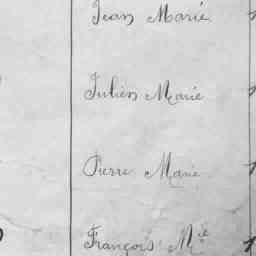 Jean Marie
Julien Marie
Pierre Marie
François Mie